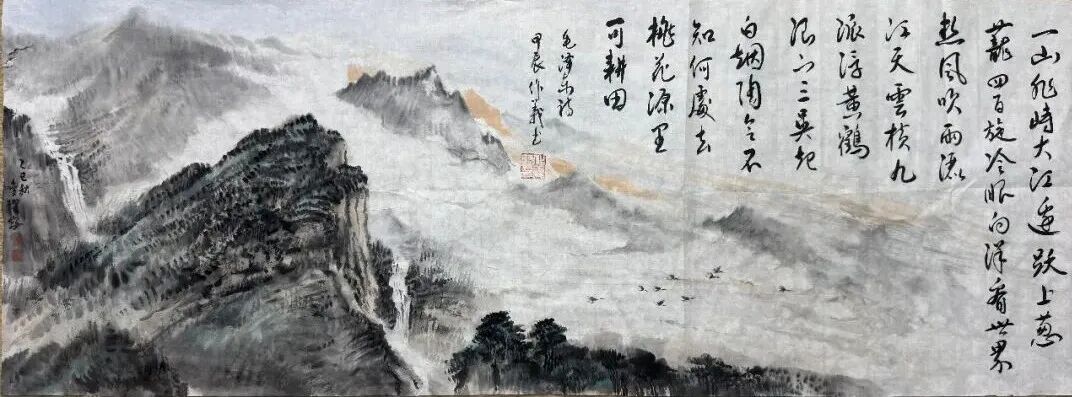 一山飛峙大江邊跃上葱
蘢四百旋冷眼向洋看世界
热風吹雨洒
江天雲横九
派浮黄鶴
浪下三吳起
白烟陶令不
知何處去
桃花源里
可耕田
毛澤東詩
甲辰
乙巳秋